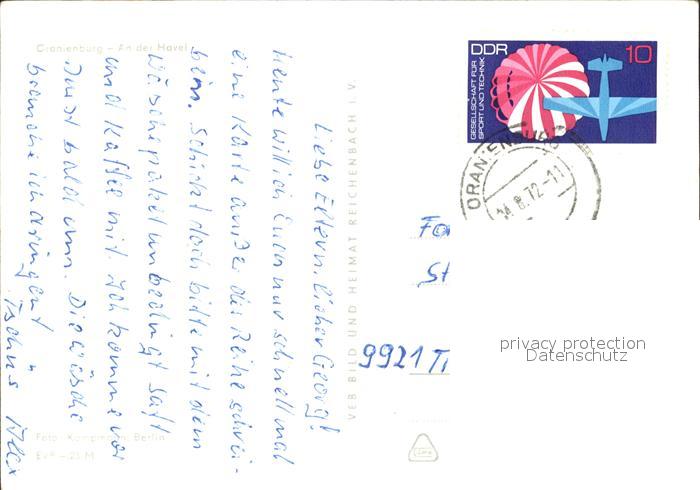 Oranienburg – An der Havel
Liebe Eltern, lieber Georg!
Heute will ich Euch nur schnell mal
eine Karte außer der Reihe schrei-
ben. Schickt doch bitte mit dem
Wäschepaket unbedingt Saft
und Kaffee mit. Ich komme vor
Durst bald um. Die Wäsche
brauche ich dringend!
Tschüs Alex
Foto: Kampmann, Berlin
EVP –,25 M
VEB BILD UND HEIMAT REICHENBACH I. V.
DDR 10
GESELLSCHAFT FÜR
SPORT UND TECHNIK
ORANIENBURG
14.8.72-11
Fa
St
9921 T
privacy protection
Datenschutz